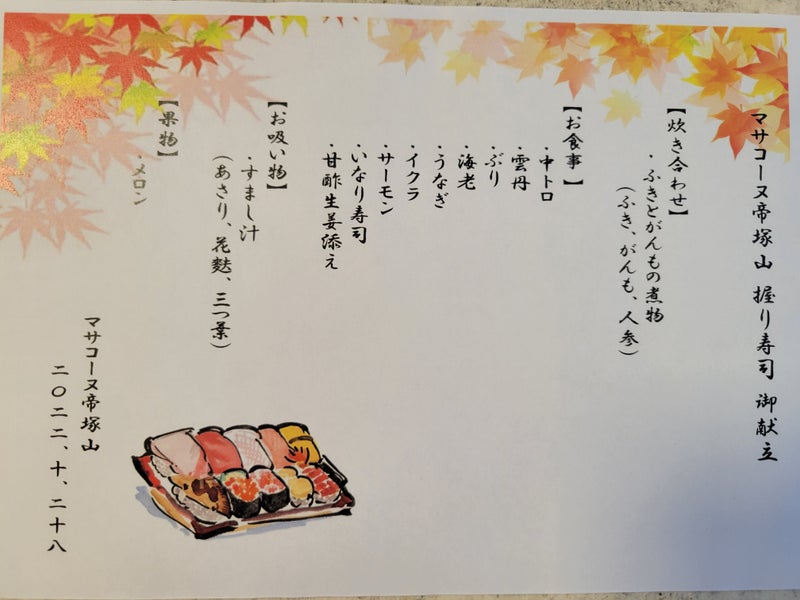 マサコーヌ帝塚山 握り寿司 御献立
【炊き合わせ】
・ふきとがんもの煮物
(ふき、がんも、人参)
【お食事】
・中トロ
・雲丹
・ぶり
・海老
・うなぎ
・イクラ
・サーモン
・いなり寿司
・甘酢生姜添え
【お吸い物】
・すまし汁
(あさり、花麩、三つ葉)
【果物】
・メロン
マサコーヌ帝塚山
二〇二二、十、二十八